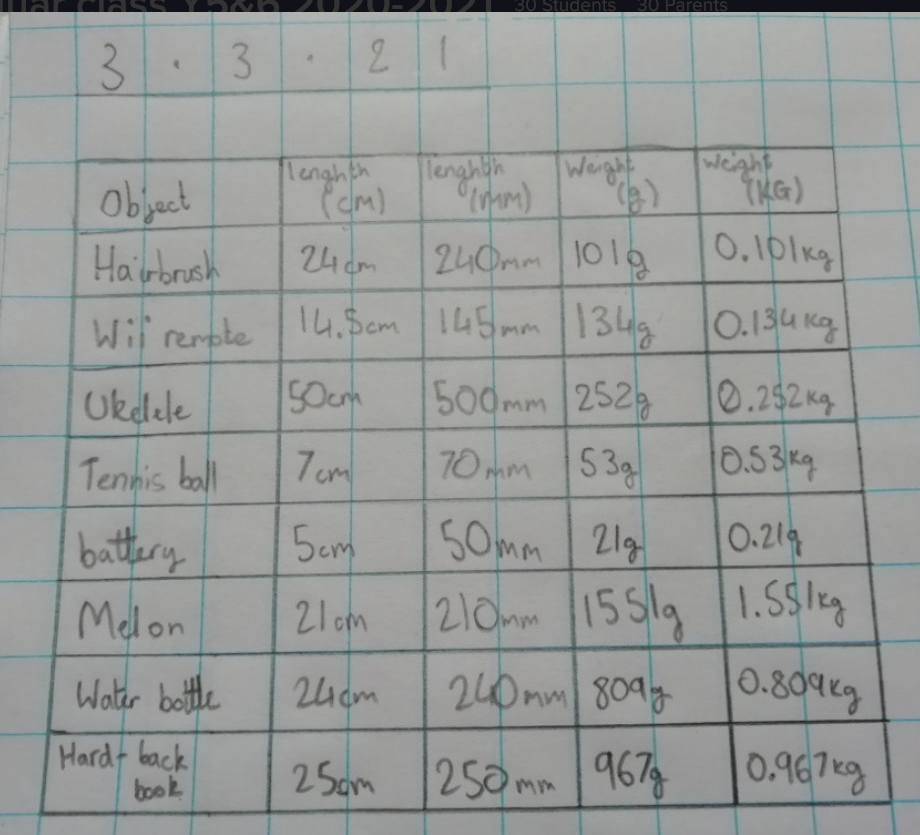 30 Students 30 Parents
3 . 3 . 21
Object lenghth (cm) lenghth (mm) Weight (g) Weight (KG)
Hairbrush 24cm 240mm 101g 0.101kg
Wii remote 14.5cm 145mm 134g 0.134kg
Ukelele 50cm 500mm 252g 0.252kg
Tennis ball 7cm 70mm 53g 0.53kg
battery 5cm 50mm 21g 0.21g
Melon 21cm 210mm 1551g 1.551kg
Water bottle 24cm 240mm 809g 0.809kg
Hard-back book 25cm 250mm 967g 0.967kg